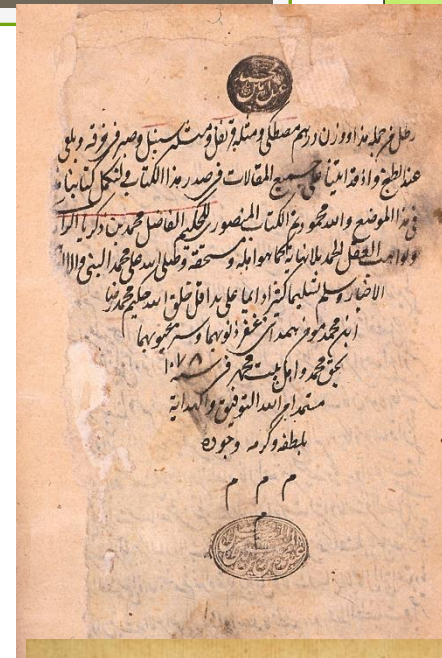 رطل من جمله هذا ووزن درهم مصطكى ومثله قرنفل ومثله سنبل وصر فى خرقه ويلقى
عند الطبخ واذ قد اتينا على جميع المقالات فى صدر هذا الكتاب فلنكمل كتابنا
فى هذا الموضع والله محمود تم الكتاب المنصورى للحكيم الفاضل محمد بن ذكريا الراز
ولواهب العقل الحمد بلا نهاية كما هو اهله ومستحقه وصلى الله على محمد النبى واله
الاخيار وسلم تسليما كثيرا دايما على يد اقل خلق الله حكيم محمد رضا
ابن محمد همدانى غفر ذنوبهما وستر عيوبهما
بحق محمد واهل بيت محمد فى سنه ١٠٧٨
مستمدا من الله التوفيق والهداية
بلطفه وكرمه وجوده
م م م